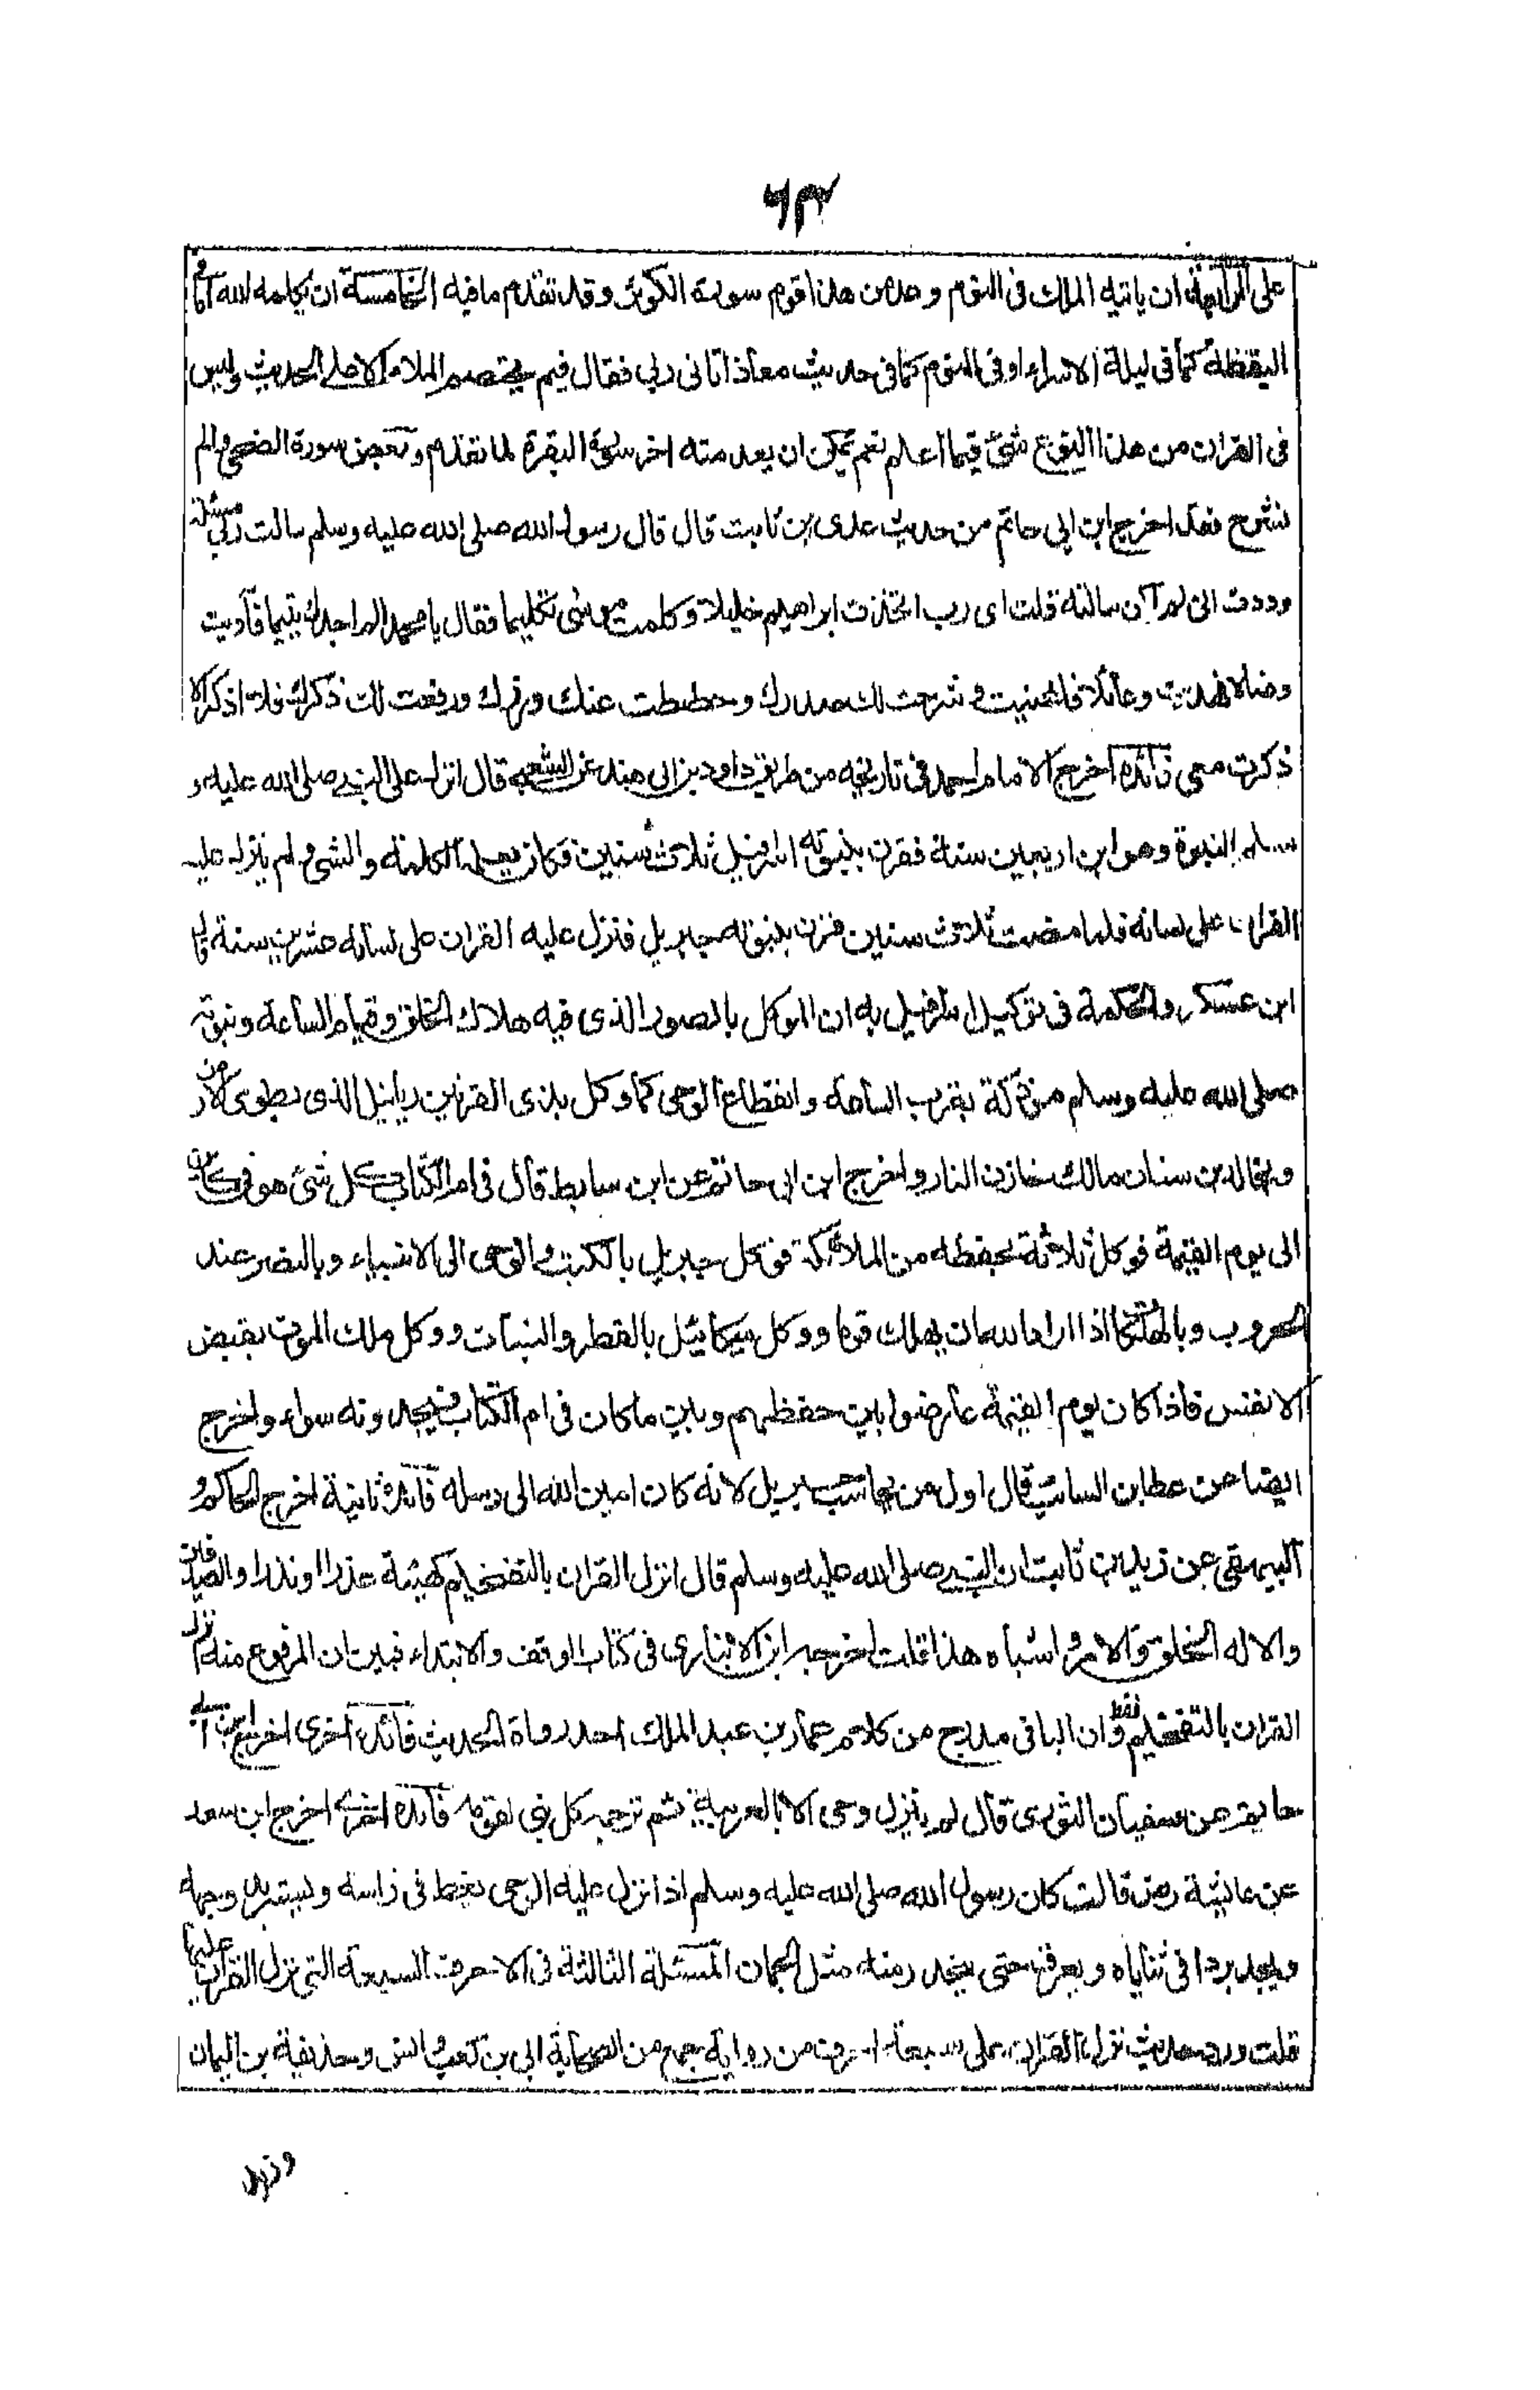 ٦٣
على الرابعة ان ياتيه الملك فى النوم وعد من هذا قوم سورة الكوثر وقد تقدم ما فيه الخامسة ان يكلمه الله اما فى
اليقظة كما فى ليلة الاسراء او فى النوم كما فى حديث معاذ اتانى ربى فقال فيم يختصم الملاء الاعلى الحديث وليس
فى القران من هذا النوع شئ فيما اعلم نعم يمكن ان يعد منه اخر سورة البقرة لما تقدم وبعض سورة الضحى والم
نشرح فقد اخرج ابن ابى حاتم من حديث عدى بن ثابت قال قال رسول الله صلى الله عليه وسلم سالت ربى مسئلة
وددت انى لم اكن سالته قلت اى رب اتخذت ابراهيم خليلا وكلمت موسى تكليما فقال يا محمد الم اجدك يتيما فآويت
وضالا فهديت وعائلا فاغنيت وشرحت لك صدرك وحططت عنك وزرك ورفعت لك ذكرك فلا اذكر الا
ذكرت معى فائدة اخرج الامام احمد فى تاريخه من طريق داود بن ابى هند عن الشعبى قال انزل على النبى صلى الله عليه و
سلم النبوة وهو ابن اربعين سنة فقرن بنبوته اسرافيل ثلاث سنين فكان يعلمه الكلمة والشئ ولم ينزل عليه
القران على لسانه فلما مضت ثلاث سنين قرن بنبوته جبريل فنزل عليه القران على لسانه عشرين سنة قال
ابن عسكر والحكمة فى توكيل اسرافيل به ان الموكل بالصور الذى فيه هلاك الخلق وقيام الساعة ونبوته
صلى الله عليه وسلم مؤذنة بقرب الساعة وانقطاع الوحى كما وكل بذى القرنين ريافيل الذى يطوى الارض
وبخالد بن سنان مالك خازن النار واخرج ابن ابى حاتم عن ابن سابط قال فى ام الكتاب كل شئ هو كائن
الى يوم القيمة فوكل ثلاثة بحفظه من الملائكة فوكل جبريل بالكتب والوحى الى الانبياء وبالنصر عند
الحروب وبالمهلكات اذا اراد الله ان يهلك قوما ووكل ميكائيل بالقطر والنبات ووكل ملك الموت بقبض
الانفس فاذا كان يوم القيمة عارضوا بين حفظهم وبين ما كان فى ام الكتاب فيجدونه سواء واخرج
ايضا عن عطا بن السائب قال اول من يحاسب جبريل لانه كان امين الله الى رسله فائدة ثانية اخرج الحاكم و
البيهقى عن زيد بن ثابت ان النبى صلى الله عليه وسلم قال انزل القران بالتفخيم كهيئة عذرا او نذرا والصدفين
والا له الخلق والامر واشباه هذا قلت اخرجه ابن الانبارى فى كتاب الوقف والابتداء فبين ان المرفوع منه انزل
القران بالتفخيم فقط وان الباقى مدرج من كلام عمار بن عبد الملك احد رواة الحديث فائدة اخرى اخرج ابن ابى
حاتم عن سفيان الثورى قال لم ينزل وحى الا بالعربية ثم ترجم كل نبى لقومه فائدة اخرى اخرج ابن سعد
عن عائشة رض قالت كان رسول الله صلى الله عليه وسلم اذا نزل عليه الوحى يغط فى راسه ويتربد وجهه
ويجد بردا فى ثناياه ويعرق حتى يتحدر منه مثل الجمان المسئلة الثالثة فى الاحرف السبعة التى نزل القران عليها
قلت ورد حديث نزل القران على سبعة احرف من رواية جمع من الصحابة ابى بن كعب وانس وحذيفة بن اليمان
وزيد